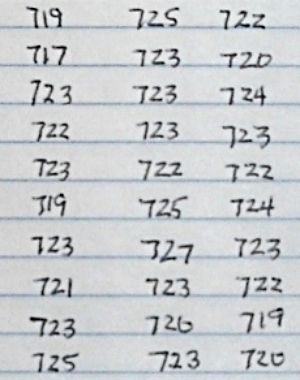 719 725 722
717 723 720
723 723 724
722 723 723
723 722 722
719 725 724
723 727 723
721 723 722
723 726 719
725 723 720